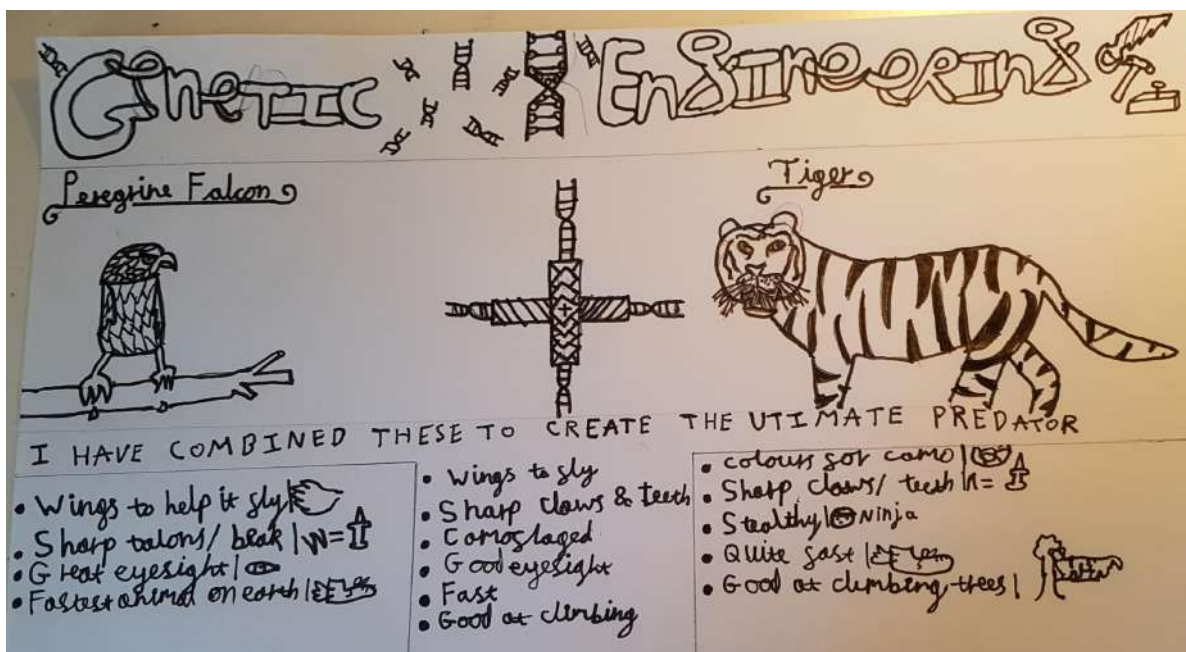 GENETIC ENGINEERING
Peregrine Falcon
Tiger
I HAVE COMBINED THESE TO CREATE THE UTIMATE PREDATOR
• Wings to help it fly |
• Sharp talons/ beak | W =
• Great eyesight |
• Fastest animal on earth |
• Wings to fly
• Sharp claws & teeth
• Camoflaged
• Good eyesight
• Fast
• Good at climbing
• colours for camo |
• Sharp claws/ teeth | n =
• Stealthy | Ninja
• Quite fast |
• Good at climbing trees |